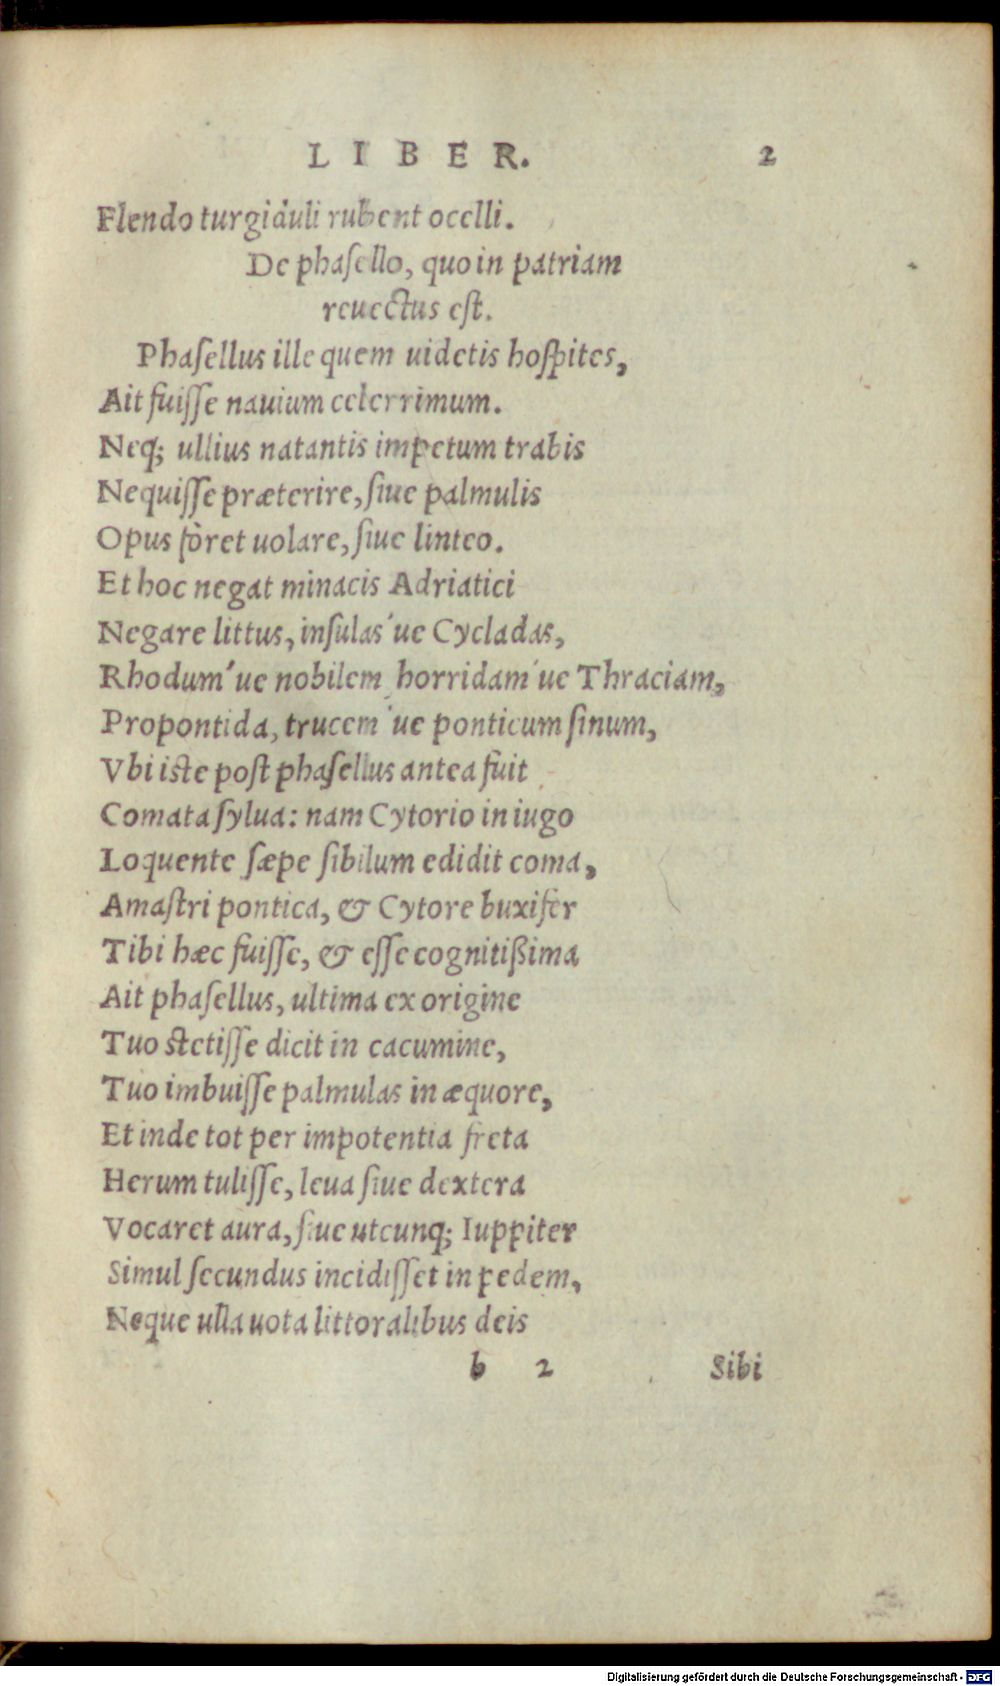 LIBER. 2
Flendo turgiduli rubent ocelli.
De phaſello, quo in patriam
reuectus eſt.
Phaſellus ille quem uidetis hoſpites,
Ait fuiſſe nauium celerrimum.
Neq; ullius natantis impetum trabis
Nequiſſe præterire, ſiue palmulis
Opus fòret uolare, ſiue linteo.
Et hoc negat minacis Adriatici
Negare littus, inſulas'ue Cycladas,
Rhodum'ue nobilem horridam'ue Thraciam,
Propontida, trucem'ue ponticum ſinum,
Vbi iste poſt phaſellus antea fuit
Comata ſylua: nam Cytorio in iugo
Loquente ſæpe ſibilum edidit coma,
Amaſtri pontica, & Cytore buxifer
Tibi hæc fuiſſe, & eſſe cognitißima
Ait phaſellus, ultima ex origine
Tuo stetiſſe dicit in cacumine,
Tuo imbuiſſe palmulas in æquore,
Et inde tot per impotentia freta
Herum tuliſſe, leua ſiue dextera
Vocaret aura, ſiue utcunq; Iuppiter
Simul ſecundus incidiſſet in pedem,
Neque ulla uota littoralibus deis
b 2 Sibi
Digitalisierung gefördert durch die Deutsche Forschungsgemeinschaft - DFG